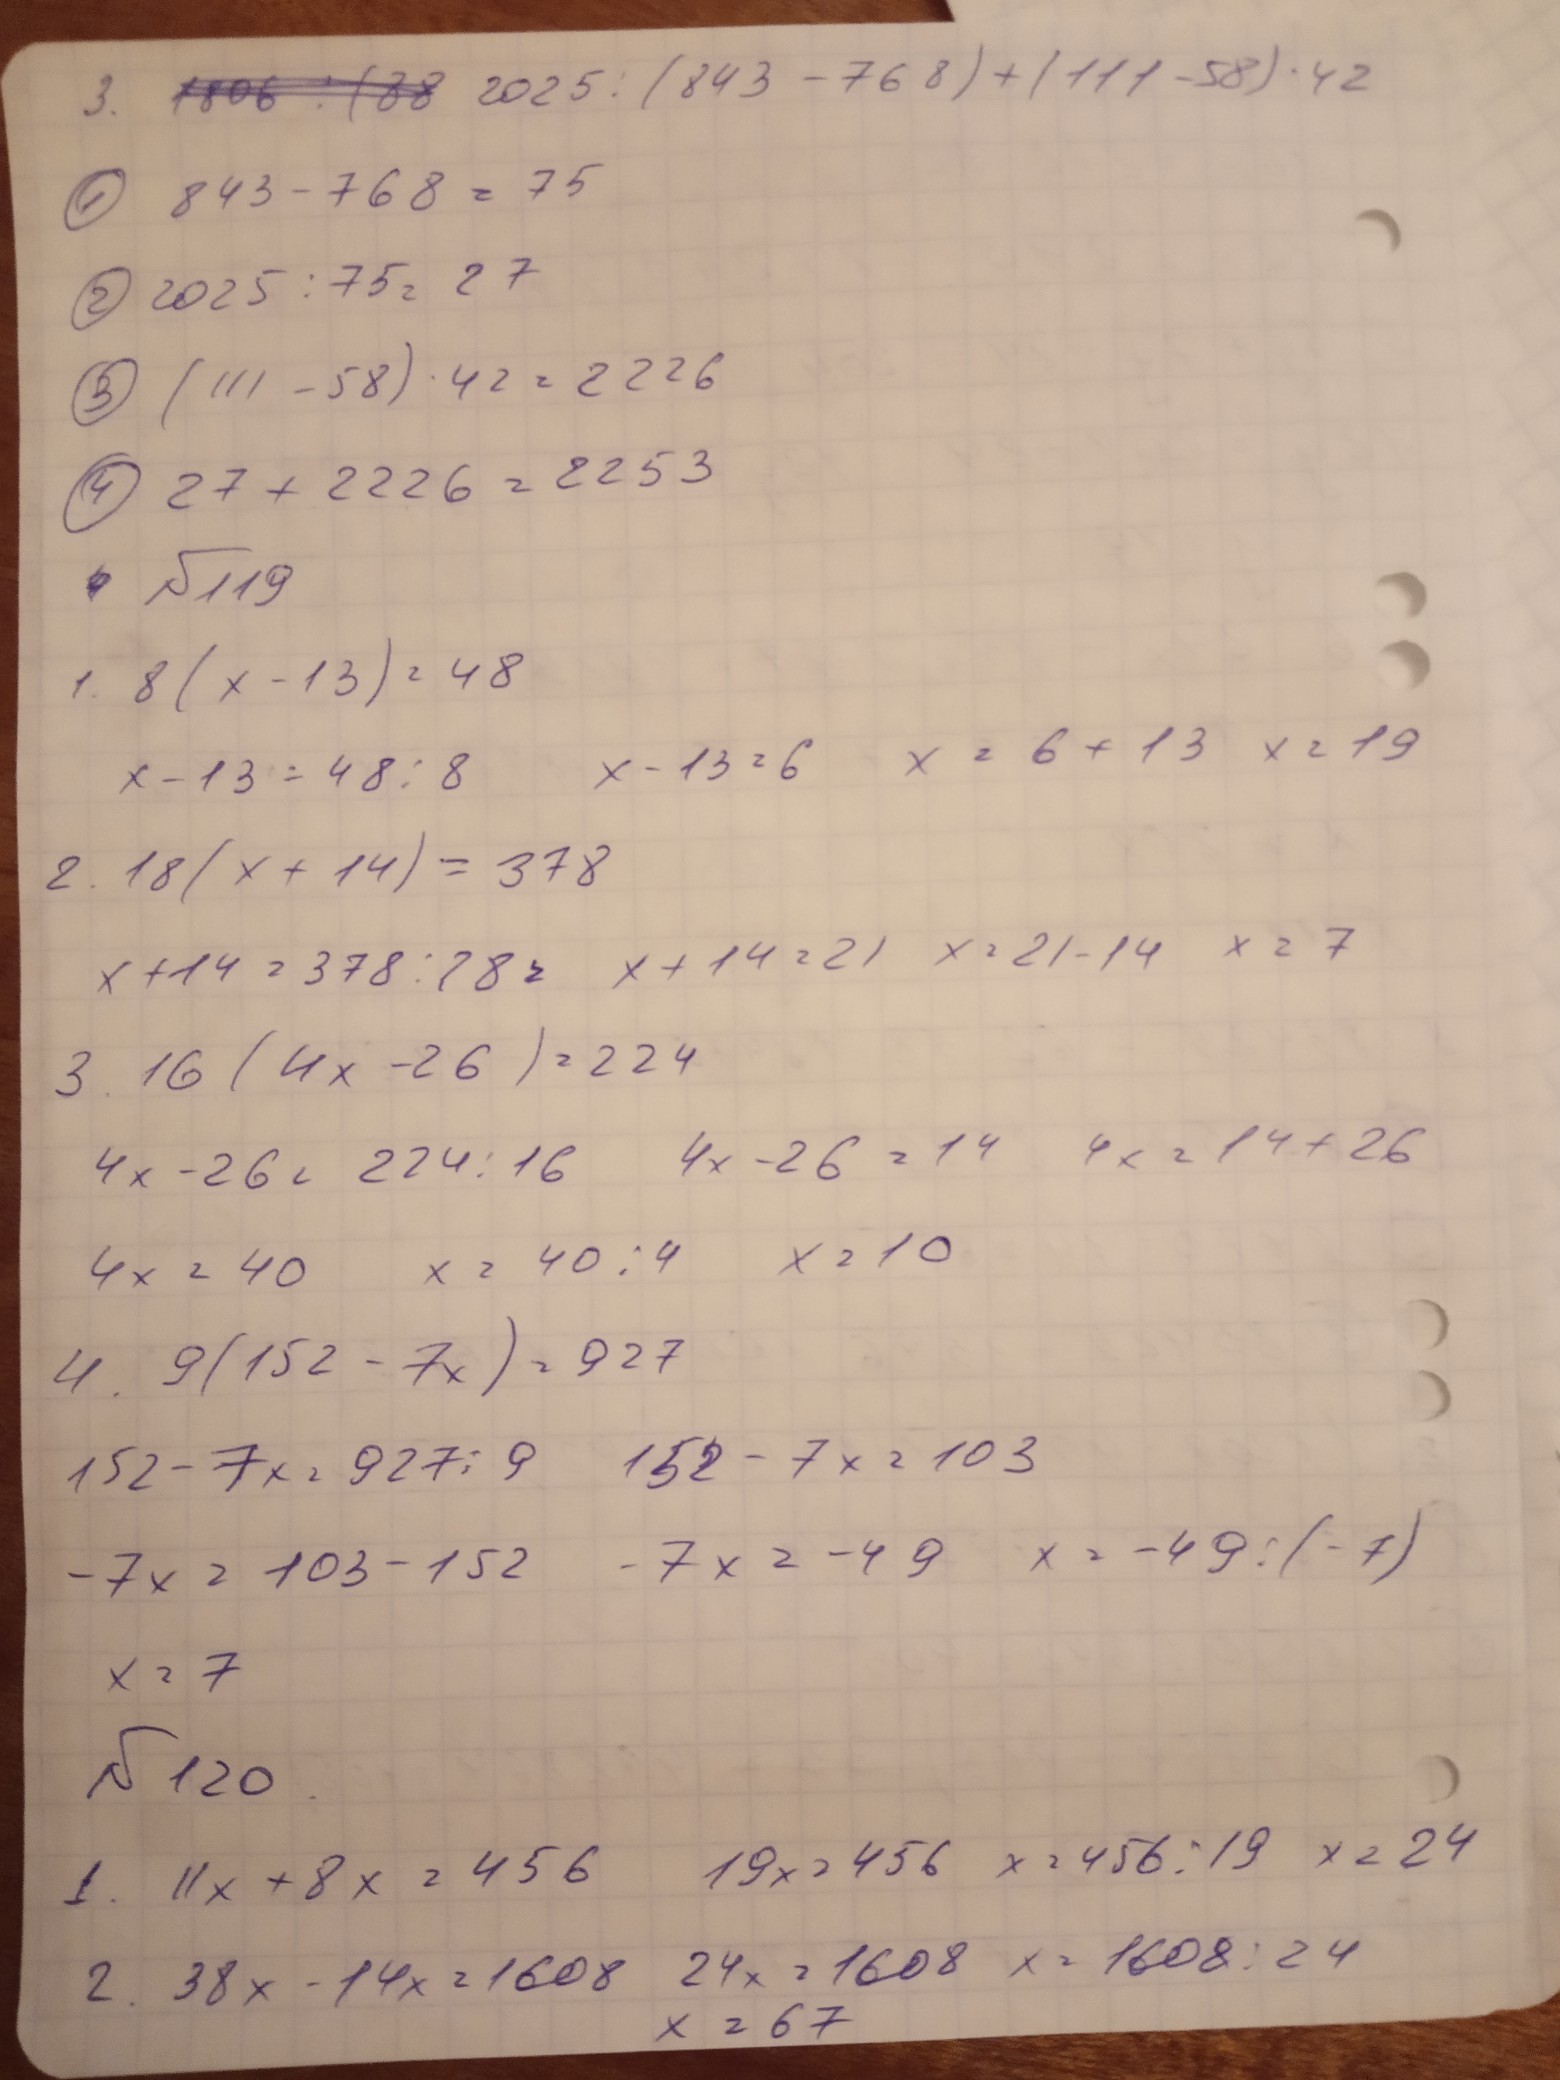 3. 1806 : (38 2025 : (843 - 768) + (111 - 58) · 42
① 843 - 768 = 75
② 2025 : 75 = 27
③ (111 - 58) · 42 = 2226
④ 27 + 2226 = 2253
№119
1. 8(x - 13) = 48
x - 13 = 48 : 8 x - 13 = 6 x = 6 + 13 x = 19
2. 18(x + 14) = 378
x + 14 = 378 : 18 = x + 14 = 21 x = 21 - 14 x = 7
3. 16(4x - 26) = 224
4x - 26 = 224 : 16 4x - 26 = 14 4x = 14 + 26
4x = 40 x = 40 : 4 x = 10
4. 9(152 - 7x) = 927
152 - 7x = 927 : 9 152 - 7x = 103
-7x = 103 - 152 -7x = -49 x = -49 : (-7)
x = 7
№120.
1. 11x + 8x = 456 19x = 456 x = 456 : 19 x = 24
2. 38x - 14x = 1608 24x = 1608 x = 1608 : 24
x = 67